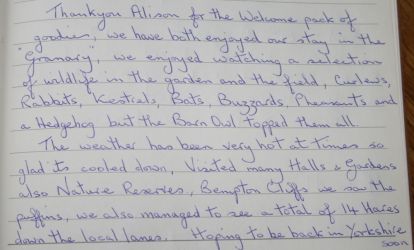 Thankyou Alison for the Welcome pack of
goodies, we have both enjoyed our stay in the
"Granary", we enjoyed watching a selection
of wildlife in the garden and the field, Curlews,
Rabbits, Kestrals, Bats, Buzzards, Pheasants and
a Hedgehog but the Barn Owl topped them all
The weather has been very hot at times so
glad its cooled down, Visited many Halls & Gardens
also Nature Reserves, Bempton Cliffs we saw the
puffins, we also managed to see a total of 14 Hares
down the local lanes. Hoping to be back in Yorkshire
soon